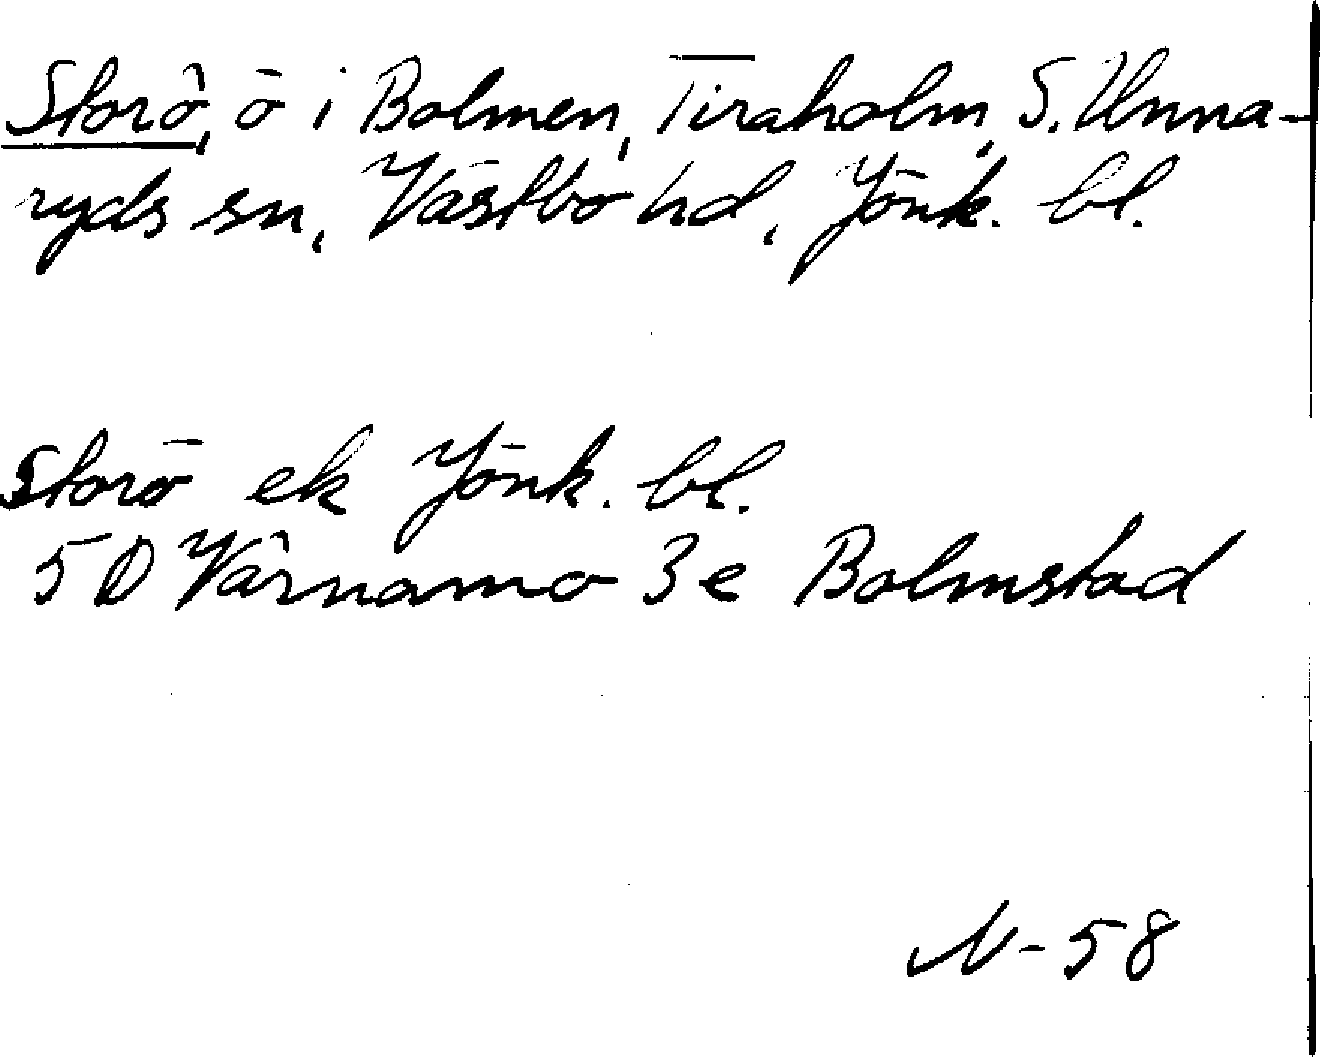 Storö, ö i Bolmen, Tiraholm, S. Unna-
ryds sn, Västbo hd, Jönk. bl.
Storö ek Jönk. bl.
5D Värnamo 3e Bolmstad
N-58